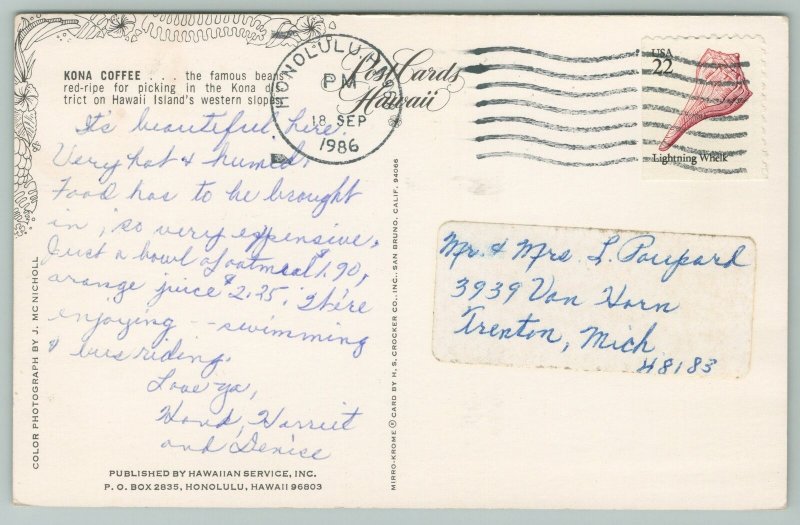 KONA COFFEE . . . the famous beans
red-ripe for picking in the Kona dis-
trict on Hawaii Island's western slopes.
It's beautiful here.
Very hot & humid.
Food has to be brought
in, so very expensive.
Just a bowl of oatmeal $1.90,
orange juice $2.25. We're
enjoying -- swimming
& bus riding.
Love ya,
Harriet
and Denise
PUBLISHED BY HAWAIIAN SERVICE, INC.
P. O. BOX 2835, HONOLULU, HAWAII 96803
COLOR PHOTOGRAPH BY J. MCNICHOLL
MIRRO-KROME ® CARD BY H. S. CROCKER CO., INC., SAN BRUNO, CALIF. 94066
HONOLULU
PM
18 SEP
1986
Post Cards
Hawaii
USA
22
Lightning Whelk
Mr. & Mrs. L. Poupard
3939 Van Horn
Trenton, Mich
48183